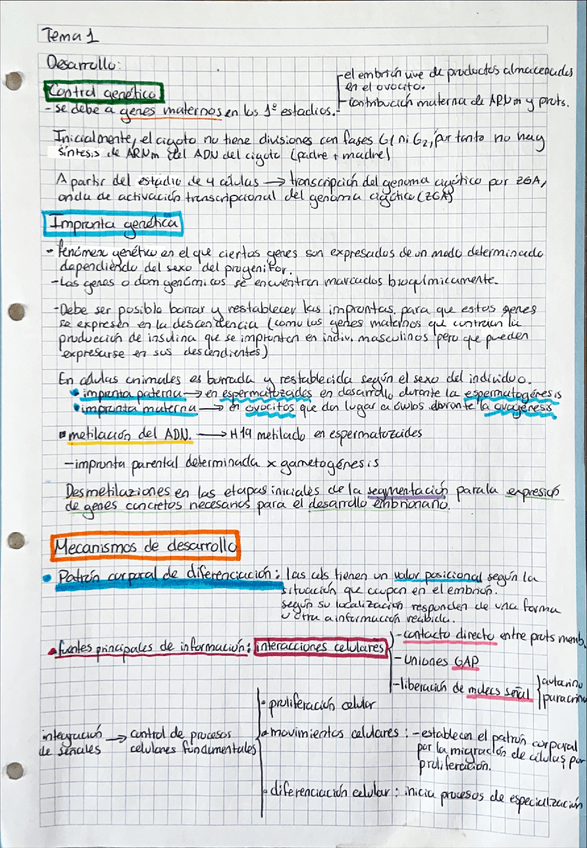 Tema 1
Desarrollo:
Control genético
- se debe a genes maternos en los 1º estadios.
- el embrión vive de productos almacenados
en el ovocito.
- contribución materna de ARNm y prots.
Inicialmente, el cigoto no tiene divisiones con fases G1 ni G2, por tanto no hay
síntesis de ARNm del ADN del cigoto (padre + madre)
A partir del estadio de 4 células → transcripción del genoma cigótico por ZGA,
onda de activación transcripcional del genoma cigótico (ZGA)
Impronta genética
- Fenómeno genético en el que ciertos genes son expresados de un modo determinado
dependiendo del sexo del progenitor.
- Los genes o dom genómicos se encuentran marcados bioquímicamente.
- Debe ser posible borrar y restablecer las improntas, para que estos genes
se expresen en la descendencia (como los genes maternos que controlan la
producción de insulina que se imprimen en indiv. masculinos pero que pueden
expresarse en sus descendientes)
En células animales es borrada y restablecida según el sexo del individuo.
• impronta paterna → en espermatozoides en desarrollo durante la espermatogénesis
• impronta materna → en ovocitos que dan lugar a óvulos durante la ovogénesis
metilación del ADN. → H19 metilado en espermatozoides
- impronta parental determinada x gametogénesis
Desmetilaziones en las etapas iniciales de la segmentación para la expresión
de genes concretos necesarios para el desarrollo embrionario.
Mecanismos de desarrollo
• Patrón corporal de diferenciación: las cels tienen un valor posicional según la
situación que ocupan en el embrión.
según su localización responden de una forma
u otra a información recibida.
fuentes principales de información: interacciones celulares
- contacto directo entre prots memb.
- uniones GAP
- liberación de molecs señal
autocrino
paracrino
integración de señales → control de procesos
celulares fundamentales
• proliferación celular
• movimientos celulares: - establecen el patrón corporal
por la migración de células por
proliferación.
• diferenciación celular: inicia procesos de especialización